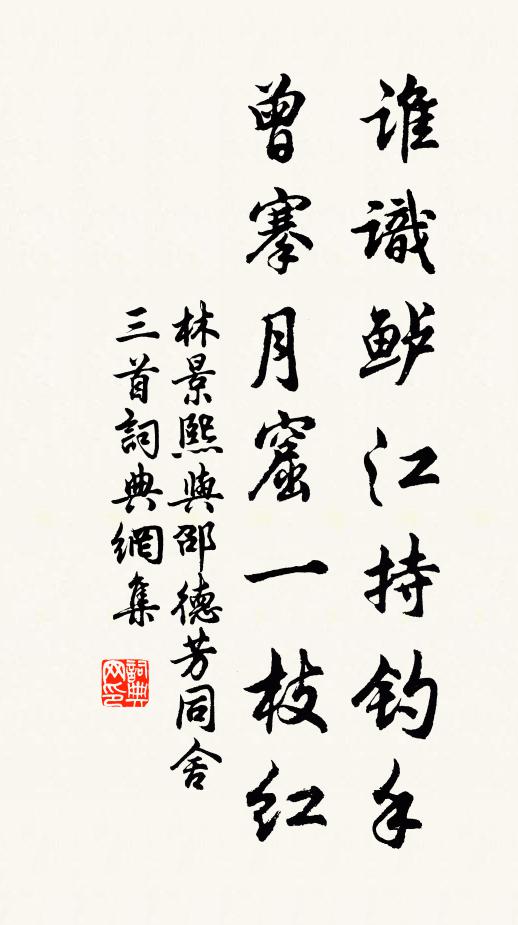 谁識鲈江持钓手
曾搴月窟一枝红
林景熙與邵德芳同舍
三首詞典網集
詞典網印